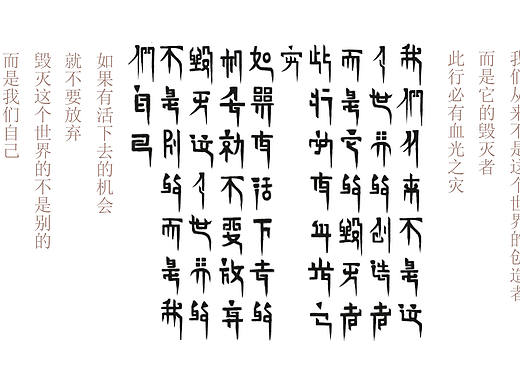 我们从来不是这个世界的创造者
而是它的毁灭者
此行必有血光之灾
我們从来不是这
个世界的创造者
而是它的毁灭者
此行必有血光之
灾
如果有活下去的
机会就不要放弃
毁灭这个世界的
不是别的而是我
們自己
如果有活下去的机会
就不要放弃
毁灭这个世界的不是别的
而是我们自己